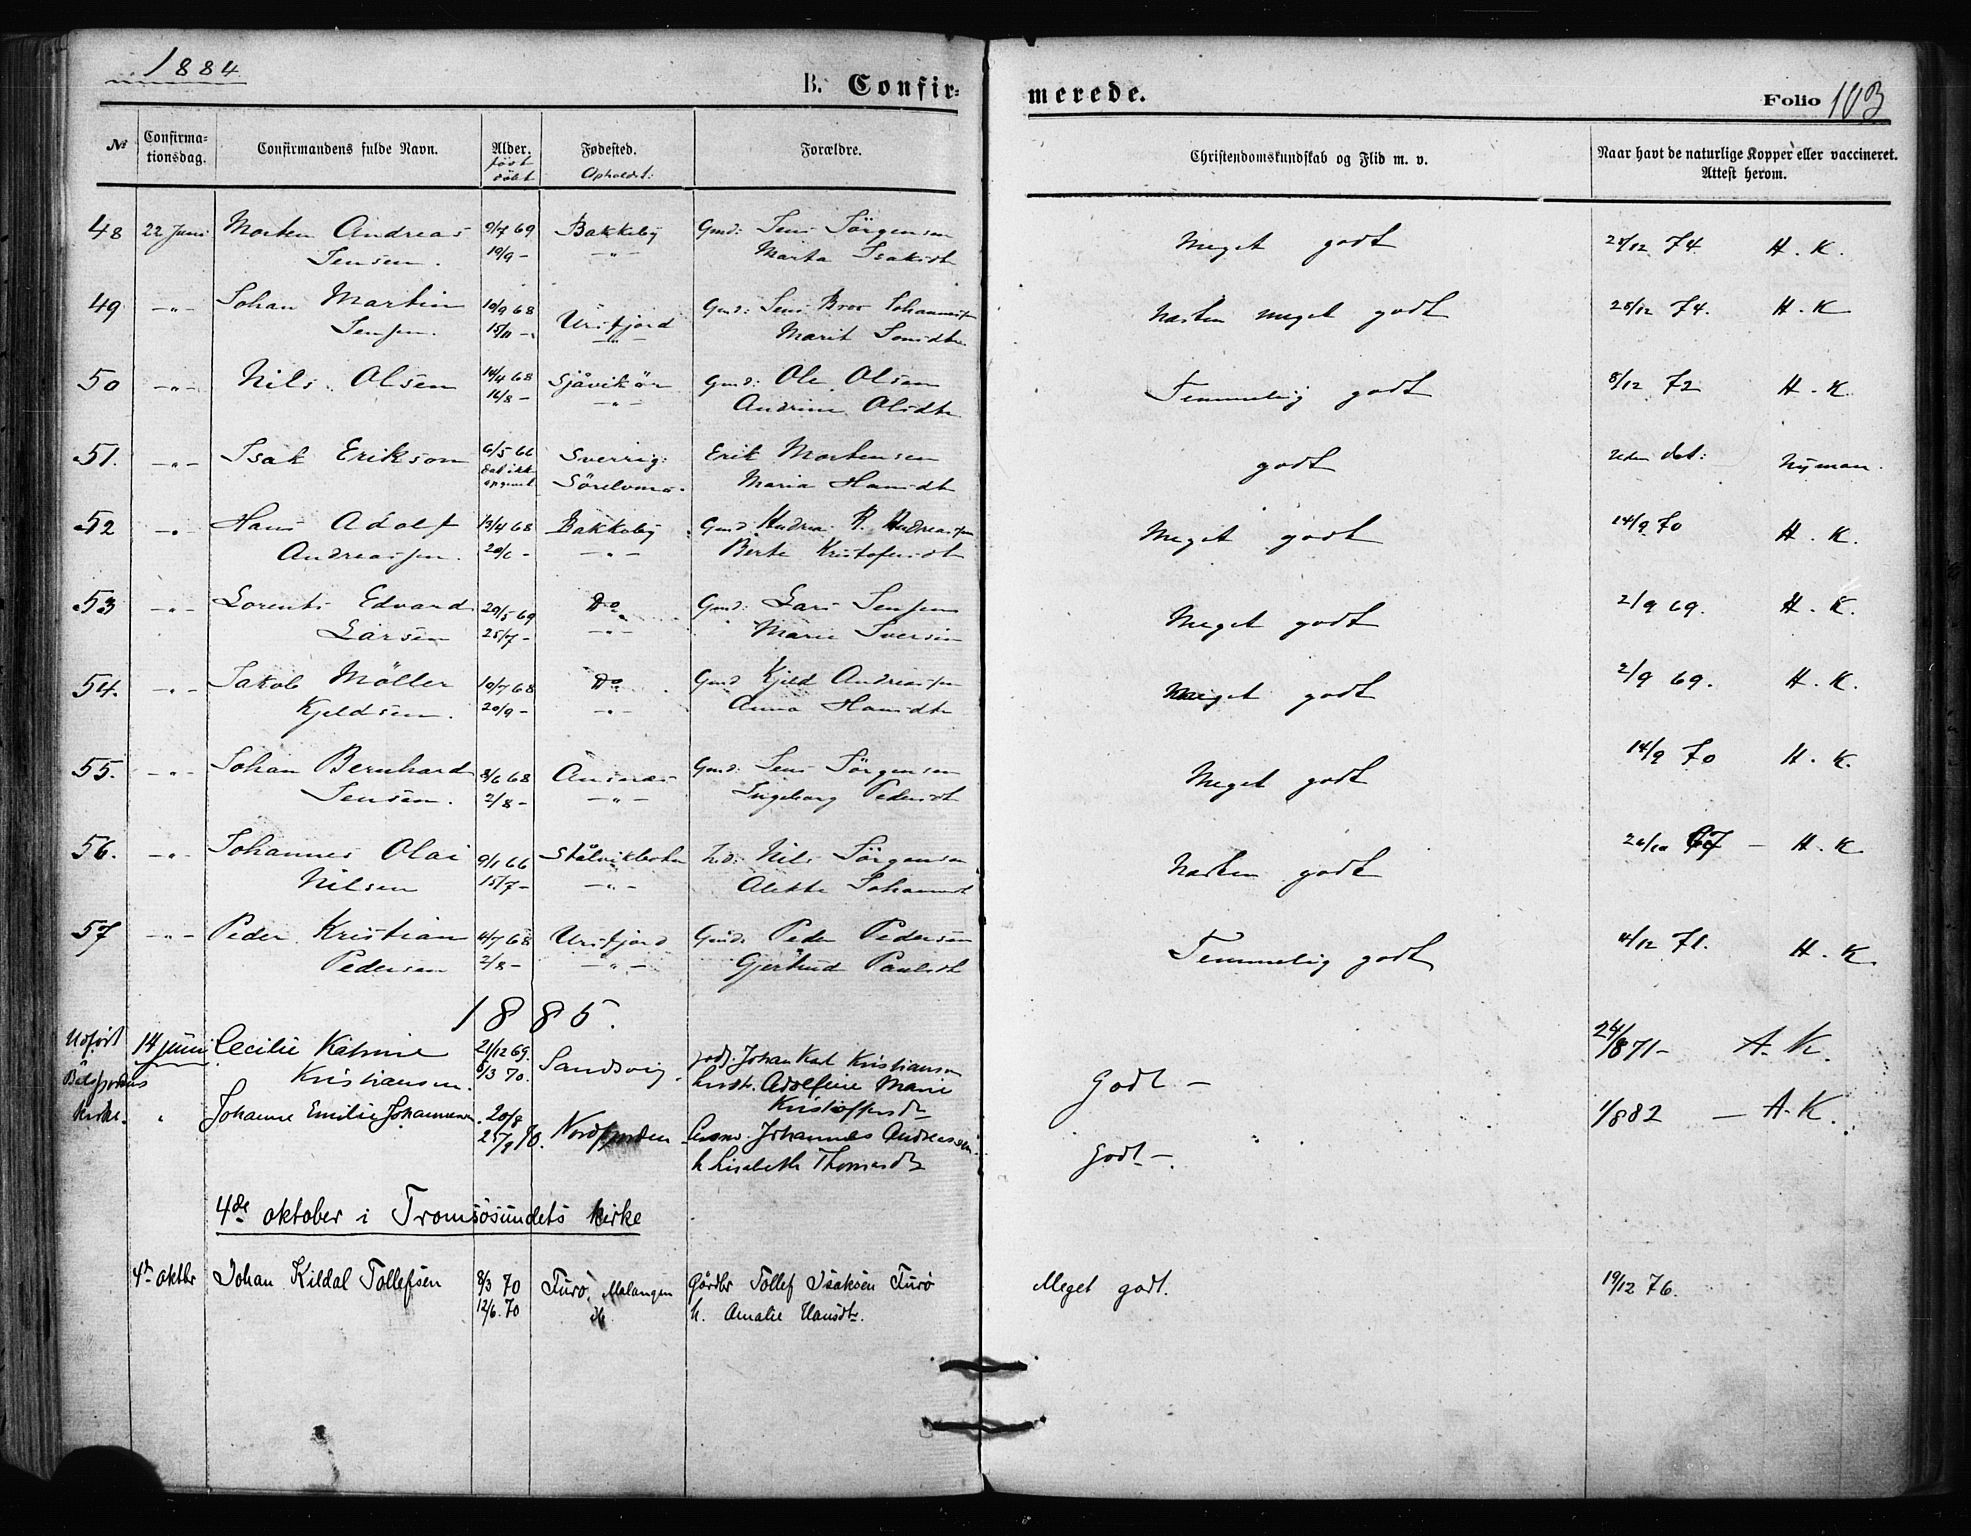 1884
B. Confir-
merede.
Folio 103
No
Confirma-
tionsdag.
Confirmandens fulde Navn.
Alder.
født
døbt
Fødested.
Opholdst:
Forældre.
Christendomskundskab og Flid m. v.
Naar havt de naturlige Kopper eller vaccineret.
Attest herom.
48 22 Juni Morten Andreas 9/7 69 Bakkeby Gmd: Jens Jörgensen Meget godt 28/12 74. H. K.
Jensen. 19/9 - -"- Marta Isaksdt
49 -"- Johan Martin 10/9 68 Ursfjord Gmd: Jens Bror Johannessen Næsten meget godt 28/12 74. H. K
Jensen. 15/11 - -"- Marit
50 -"- Nils Olsen 14/4 68 Sjåvikör Gmd: Ole Olsen Temmelig godt 8/12 72 H. K
16/8 - -"- Andrine Olsdtr
51. -"- Isak Erikson 6/5 66 Sverrig: Erik Mortensen godt Uden dat: Nyman.
Dat ikke opgivet Maria Hansdt
52 -"- Hans Adolf 13/4 68 Bakkeby Gmd. Andrea R. Andreassen Meget godt 14/9 70 H. K.
Andreassen. 20/6 - -"- Berte Kristofersdt
53 -"- Lorents Edvard 20/5 69 Do Gmd: Lars Jensen Meget godt 2/9 69. H. K.
Larsen 25/7 - -"- Marie
54. -"- Jakob Möller 10/7 68 Do Gmd Kjeld Andreassen Meget godt 2/9 69. H. K.
Kjeldsen. 20/9 - -"- Anna Hansdtr
55. -"- Johan Bernhard 8/6 68 Ansnæs Gmd: Jens Jörgensen Meget godt 14/9 70 H. K.
Jensen. 2/8 - -"- Ingeborg Pedersdt
56. -"- Johannes Olai 9/1 66 Stålvikbotn Nils Jörgensen Næsten godt 26/10 67 - H. K
Nilsen 15/7 - -"- Alette Johannsdt
57 -"- Peder Kristian 4/7 68 Ursfjord Gmd: Peder Pedersen Temmelig godt 14/12 71. H. K.
Pedersen 2/8 - -"- Gjertrud Paulsdt
1885.
Udført 14 juni Cecilie Katrine 21/12 69. Sandvig. Johan Karl Kristiansen Godt - 24/871 - A. K.
Balsfjordens Kristiansen. 6/3 70. Adolfine Marie
Kristoffersdtr
kirke. " Johanne Emilie Johannesen 20/8 Nordfjorden Johannes Andreassen Godt -. 1/882 - A. K.
25/9 70. h Lisabeth Thomasdtr
4de oktober i Tromsösundets kirke
4de oktbr Johan Kildal Tollefsen 8/3 70 Turö, Malangen Gårdbr Tollef Isaksen Turö Meget godt. 19/12 76.
12/6. 70 h. Amalie Hansdtr.